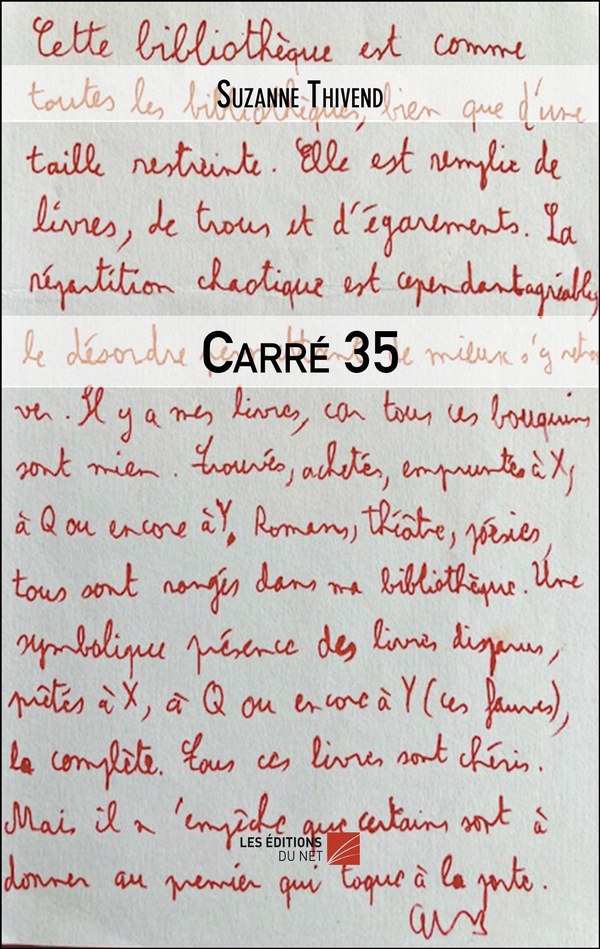 Cette bibliothèque est comme
toutes les bibliothèques, bien que d'une
SUZANNE THIVEND
taille restreinte. Elle est remplie de
livres, de trous et d'égarements. La
répartition chaotique est cependant agréable,
le désordre permettant de mieux s'y retrou
CARRÉ 35
ver. Il y a mes livres, car tous ces bouquins
sont mien. Trouvés, achetés, empruntés à X,
à Q ou encore à Y. Romans, théâtre, poésies,
tous sont rangés dans ma bibliothèque. Une
symbolique présence des livres disparus,
prêtés à X, à Q ou encore à Y (ces fauves),
la complète. Tous ces livres sont chéris.
Mais il n'empêche que certains sont à
LES ÉDITIONS
DU NET
donner au premier qui toque à la porte.